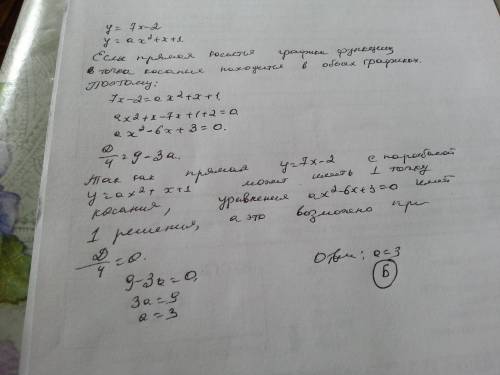 y = 7x-2
y = ax²+x+1
Если прямая касается графика функции,
то точка касания находится в обоих графиках.
Поэтому:
7x-2 = ax²+x+1,
ax²+x-7x+1+2=0
ax²-6x+3=0.
D/4 = 9-3a.
Так как прямая y=7x-2 с параболой
y=ax²+x+1 может иметь 1 точку
касания, уравнения ax²-6x+3=0 имеет
1 решения, а это возможно при
D/4 = 0.
9-3a=0,
3a=9
a=3
Ответ: a=3
Б